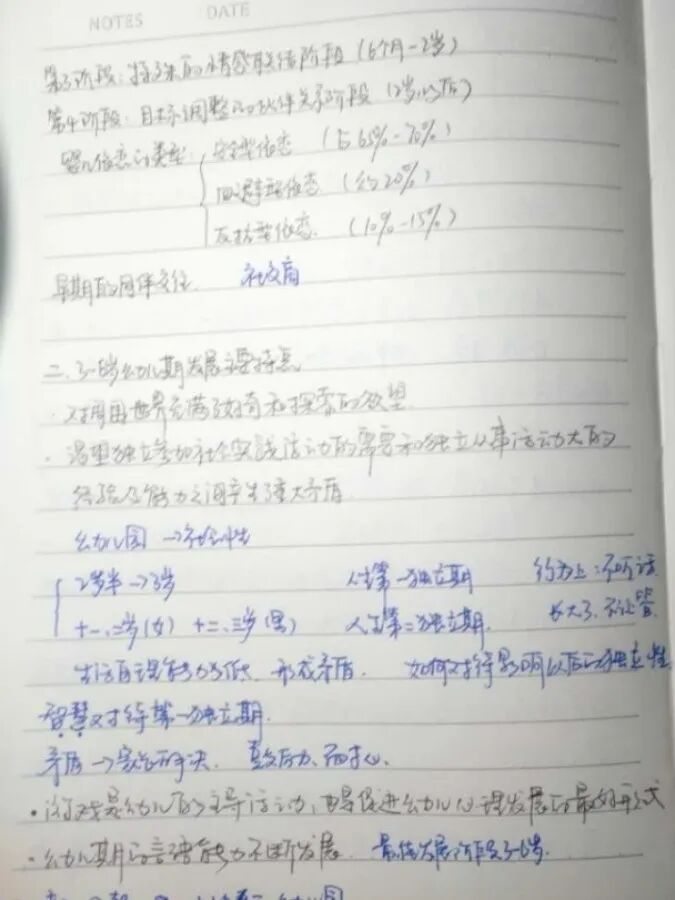 NOTES DATE
第3阶段：特殊的情感联结阶段（6个月-2岁）
第4阶段：目标调整的伙伴关系阶段（2岁以后）
婴儿依恋的类型 安全型依恋（占65%-70%）
回避型依恋（约20%）
反抗型依恋（10%-15%）
早期的同伴交往 社交商
二、3-6岁幼儿期发展主要特点
·对周围世界充满了好奇和探索的欲望
·渴望独立参加社会实践活动的需要和独立从事活动大的
经验及能力之间产生重大矛盾
幼儿园→社会性
2岁半→3岁 人生第一独立期 行为上：不听话
十一、二岁(女) 十二、三岁(男) 人生第二独立期. 长大了，不让管
生活自理能力低 形成矛盾. 如何对待影响以后的独立性
智慧对待第一独立期.
矛盾→ 解决. 耐心.
·游戏是幼儿的主导活动，也是促进幼儿心理发展的最好形式
·幼儿期的言语能力不断发展. 最佳发展阶段3-6岁.